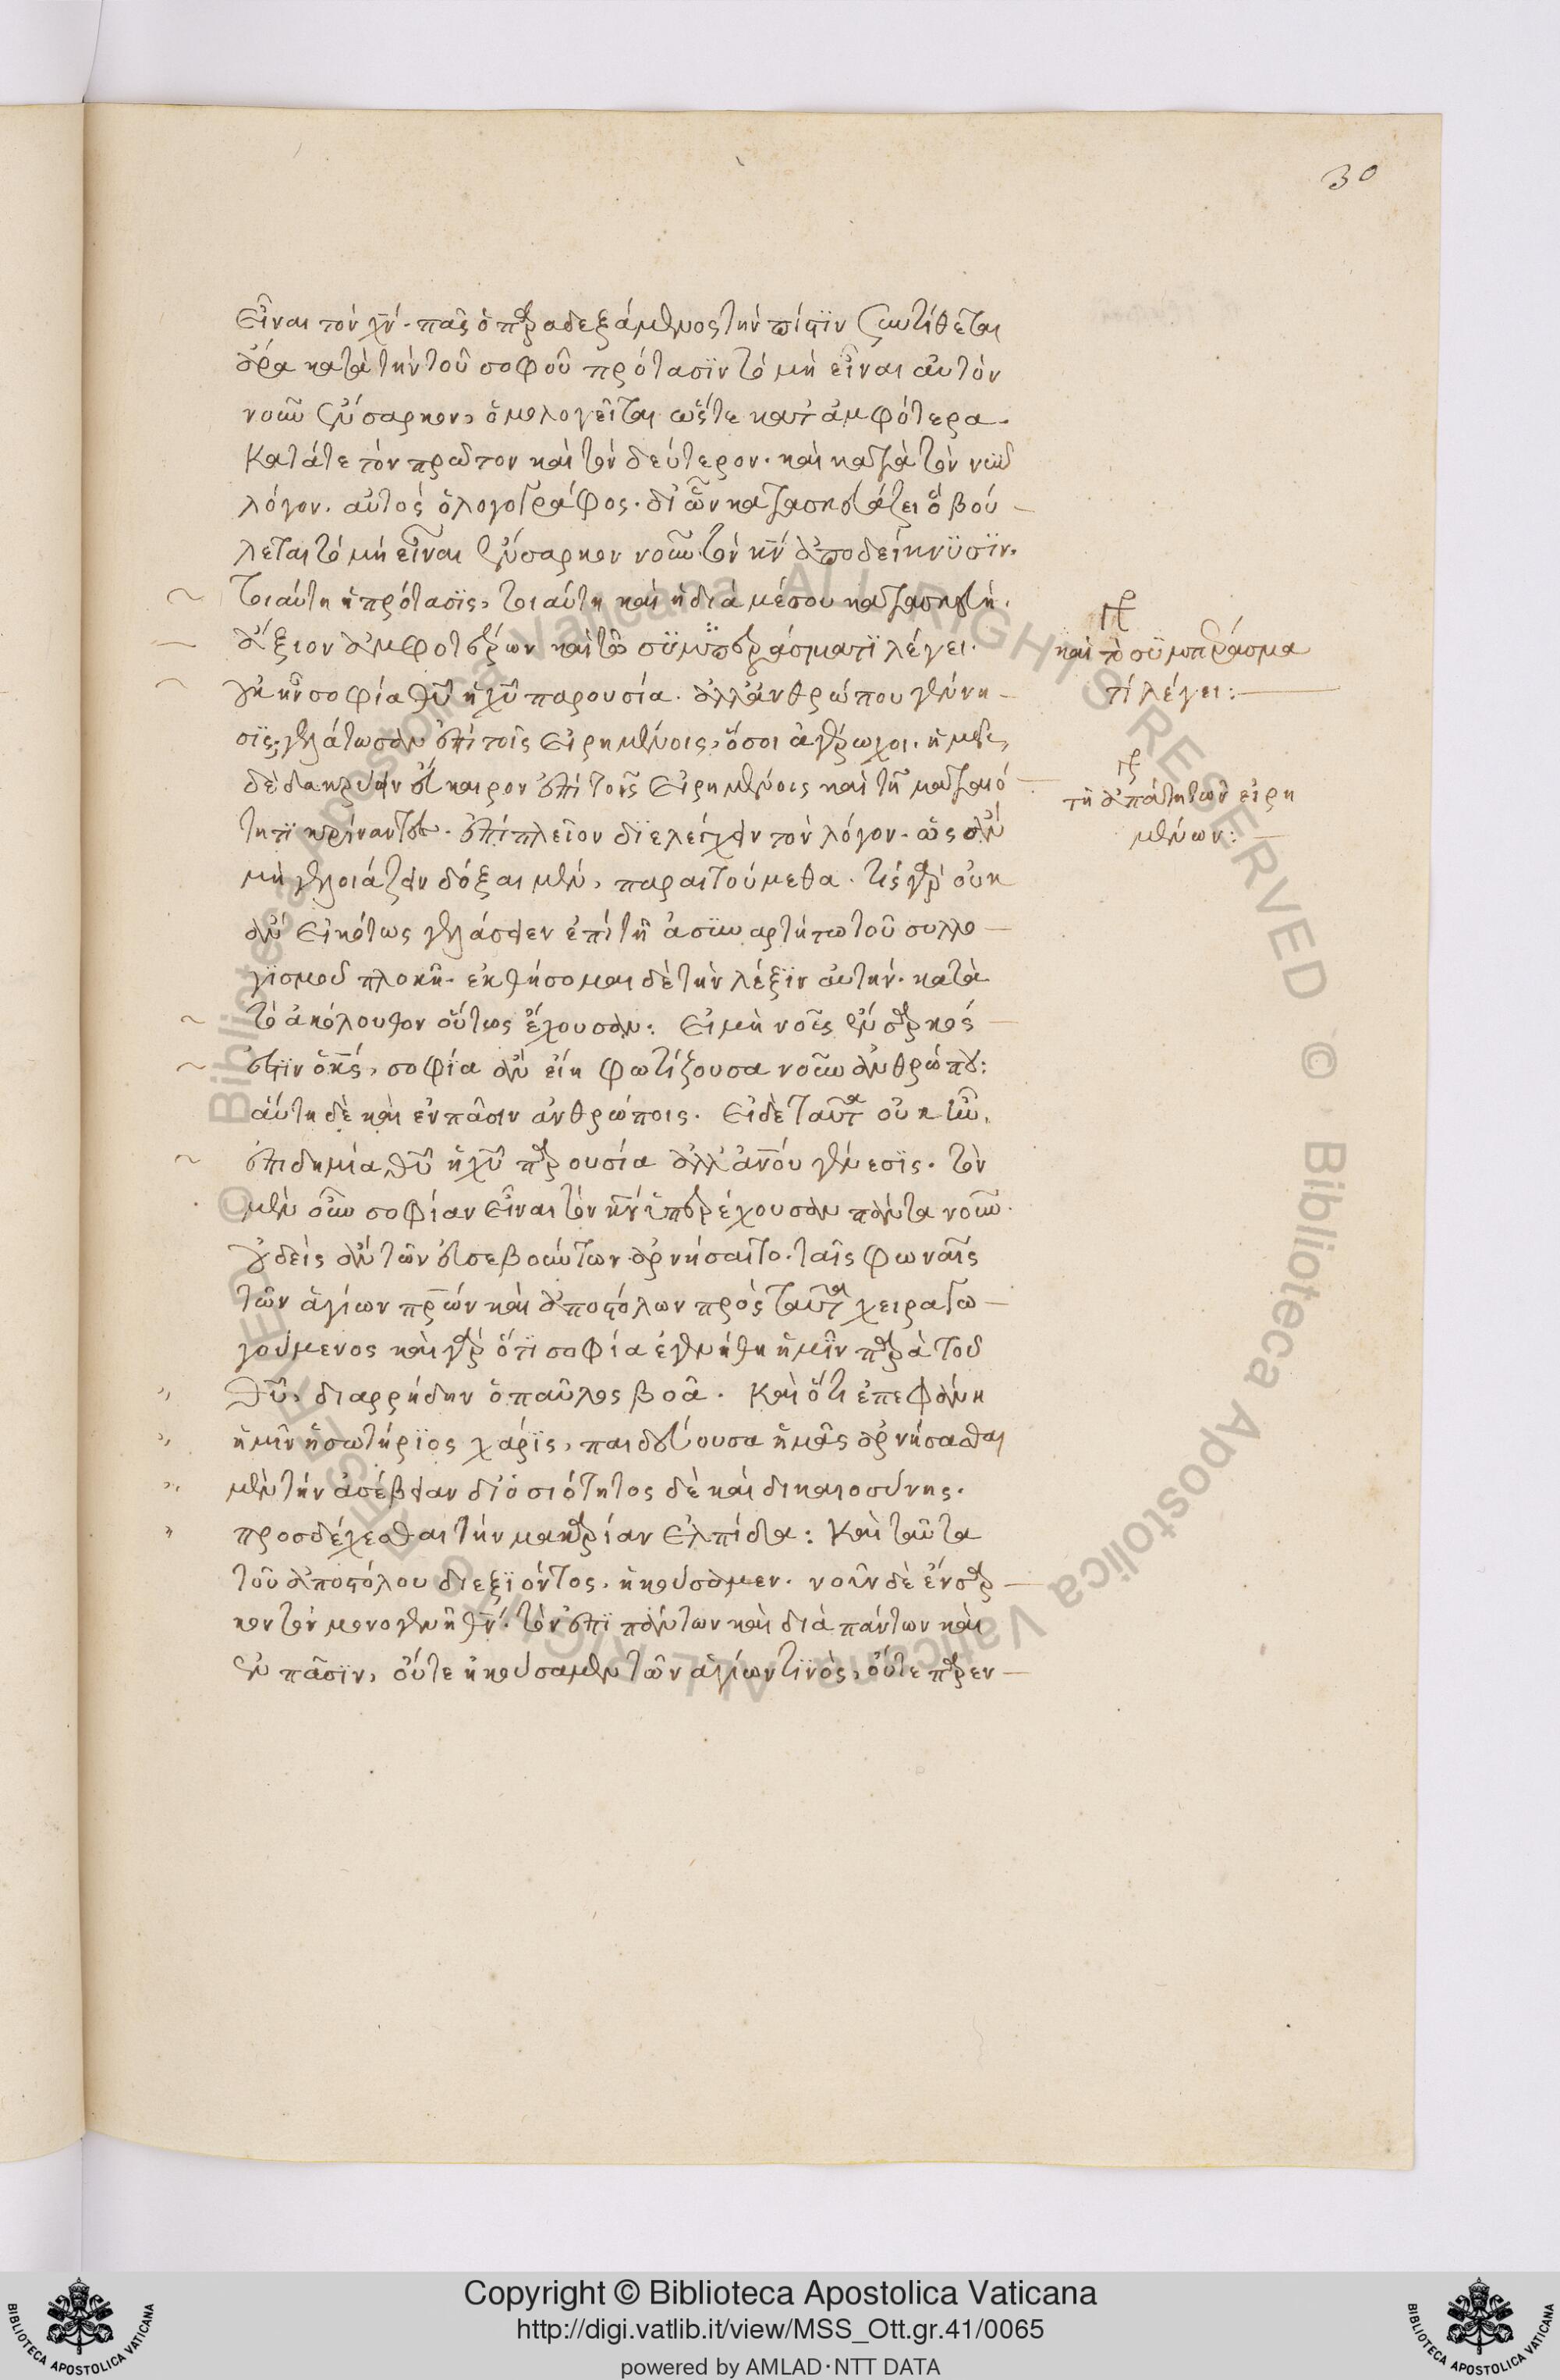 30
εἶναι τὸν χν̅. πᾶς ὁ παραδεξάμενος τὴν πίστϊν συντίθεται
ἄρα κατὰ τὴν τοῦ σοφοῦ πρότασϊν τὸ μὴ εἶναι αὐτὸν
νοῦν ἔνσαρκον, ὁμολογεῖται ὥστε κατ' ἀμφότερα.
κατά τε τὸν πρῶτον καὶ τὸν δεύτερον. καὶ κατὰ τὸν νῦν
λόγον. αὐτὸς ὁ λογογράφος. δι' ὧν κατασκευάζει ὃ βού
λεται τὸ μὴ εἶναι ἔνσαρκον νοῦν τὸν κν̅ ἀποδείκνϋσϊν.
τοιαύτη ἡ πρότασϊς, τοιαύτη καὶ ἡ διὰ μέσου κατασκευή.
ἄξιον ἀμφοτέρων καὶ τῶ σϋμπεράσματϊ λέγει.
οὐκ ἦν σοφία θυ̅ ἡ χυ̅ παρουσία. ἀλλ' ἀνθρώπου γέννη
σϊς, γελάτωσαν ἐπὶ τοῖς εἰρημένοις, ὅσοι ἀγέρωχοι. ἡμεῖς
δὲ δακρύειν εὔκαιρον ἐπὶ τοῖς εἰρημένοις καὶ τῇ ματαιό
τητϊ κρίναντες. ἐπὶ πλεῖον διελέγχειν τὸν λόγον. ὡς ἂν
μὴ γελοιάζειν δόξαιμεν, παραιτούμεθα. τίς γὰρ οὐκ
ἂν εἰκότως γελάσειεν ἐπὶ τῇ ἀσυναρτήτω τοῦ συλλο
γισμοῦ πλοκῇ. ἐκθήσομαι δὲ τὴν λέξϊν αὐτήν. κατὰ
τὸ ἀκόλουθον οὕτως ἔχουσαν: εἰ μὴ νοῦς ἔνσαρκός
ἐστϊν ὁ κς̅, σοφία ἂν εἴη φωτίζουσα νοῦν ἀνθρώπου:
αὕτη δὲ καὶ ἐν πᾶσιν ἀνθρώποις. εἰ δὲ ταῦτα οὐκ ἦν.
ἐπιδημία θυ̅ ἡ χυ̅ παρουσία ἀλλ' ἀνο̅υ γένεσϊς. τὸν
μὲν οὖν σοφίαν εἶναι τὸν κν̅ ὑπερέχουσαν πάντα νοῦν.
οὐδεὶς ἂν τῶν εὐσεβούντων ἀρνήσαιτο. ταῖς φωναῖς
τῶν ἁγίων πρ̅ων καὶ ἀποστόλων πρὸς ταῦτα χειραγω
γούμενος καὶ γὰρ ὅτι σοφία ἐγενήθη ἡμῖν παρὰ τοῦ
θυ̅, διαρρήδην ὁ παῦλος βοᾶ. καὶ ὅτι ἐπεφάνη
ἡμῖν ἡ σωτήρϊος χάρϊς, παιδεύουσα ἡμᾶς ἀρνήσασθαι
μὲν τὴν ἀσέβειαν δι' ὁσιότητος δὲ καὶ δικαιοσύνης.
προσδέχεσθαι τὴν μακαρίαν ἐλπίδα: καὶ ταῦτα
τοῦ ἀποστόλου διεξϊόντος, ἠκούσαμεν. νοῦν δὲ ἔνσαρ
κον τὸν μονογενῆ θν̅. τὸν ἐπϊ πάντων καὶ διὰ πάντων καὶ
ἐν πᾶσϊν, οὔτε ἠκούσαμεν τῶν ἁγίων τϊνὸς, οὔτε παρεν
καὶ τὸ σϋμπέρασμα
τί λέγει:
τῇ ἀπάτη τῶν εἰρη
μένων:
Copyright © Biblioteca Apostolica Vaticana
http://digi.vatlib.it/view/MSS_Ott.gr.41/0065
powered by AMLAD·NTT DATA
BIBLIOTECA APOSTOLICA VATICANA
BIBLIOTECA APOSTOLICA VATICANA
© Biblioteca Apostolica Vaticana ALL RIGHTS RESERVED © Biblioteca Apostolica Vaticana ALL RIGHTS RESERVED